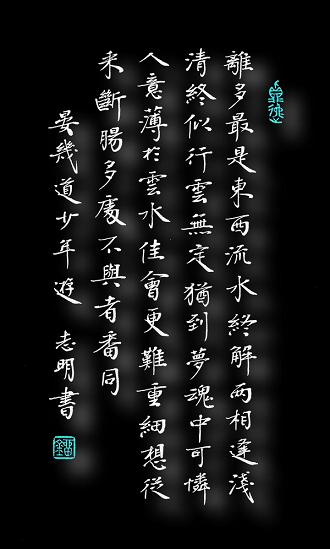 離多最是東西流水終解兩相逢淺
清終似行雲無定猶到夢魂中可憐
人意薄於雲水佳會更難重細想從
来斷腸多處不與者番同
晏幾道少年遊 志明書